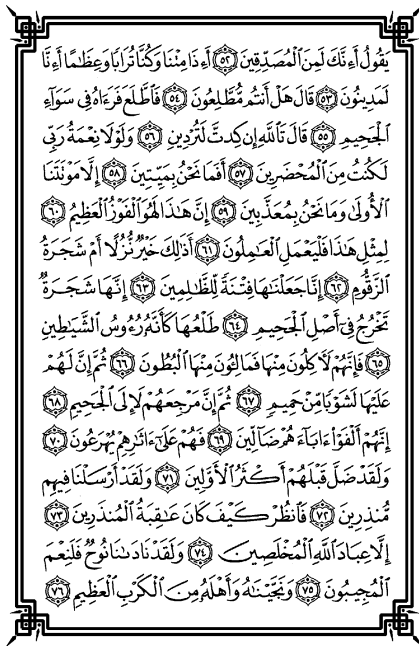 يَقُولُ أَءِنَّكَ لَمِنَ ٱلْمُصَدِّقِينَ ٥٢ أَءِذَا مِتْنَا وَكُنَّا تُرَابًا وَعِظَٰمًا أَءِنَّا
لَمَدِينُونَ ٥٣ قَالَ هَلْ أَنتُم مُّطَّلِعُونَ ٥٤ فَٱطَّلَعَ فَرَءَاهُ فِى سَوَآءِ
ٱلْجَحِيمِ ٥٥ قَالَ تَٱللَّهِ إِن كِدتَّ لَتُرْدِينِ ٥٦ وَلَوْلَا نِعْمَةُ رَبِّى
لَكُنتُ مِنَ ٱلْمُحْضَرِينَ ٥٧ أَفَمَا نَحْنُ بِمَيِّتِينَ ٥٨ إِلَّا مَوْتَتَنَا
ٱلْأُولَىٰ وَمَا نَحْنُ بِمُعَذَّبِينَ ٥٩ إِنَّ هَٰذَا لَهُوَ ٱلْفَوْزُ ٱلْعَظِيمُ ٦٠
لِمِثْلِ هَٰذَا فَلْيَعْمَلِ ٱلْعَٰمِلُونَ ٦١ أَذَٰلِكَ خَيْرٌ نُّزُلًا أَمْ شَجَرَةُ
ٱلزَّقُّومِ ٦٢ إِنَّا جَعَلْنَٰهَا فِتْنَةً لِّلظَّٰلِمِينَ ٦٣ إِنَّهَا شَجَرَةٌ
تَخْرُجُ فِىٓ أَصْلِ ٱلْجَحِيمِ ٦٤ طَلْعُهَا كَأَنَّهُۥ رُءُوسُ ٱلشَّيَٰطِينِ
٦٥ فَإِنَّهُمْ لَءَاكِلُونَ مِنْهَا فَمَالِـُٔونَ مِنْهَا ٱلْبُطُونَ ٦٦ ثُمَّ إِنَّ لَهُمْ
عَلَيْهَا لَشَوْبًا مِّنْ حَمِيمٍ ٦٧ ثُمَّ إِنَّ مَرْجِعَهُمْ لَإِلَى ٱلْجَحِيمِ ٦٨
إِنَّهُمْ أَلْفَوْا۟ ءَابَآءَهُمْ ضَآلِّينَ ٦٩ فَهُمْ عَلَىٰٓ ءَاثَٰرِهِمْ يُهْرَعُونَ ٧٠
وَلَقَدْ ضَلَّ قَبْلَهُمْ أَكْثَرُ ٱلْأَوَّلِينَ ٧١ وَلَقَدْ أَرْسَلْنَا فِيهِم
مُّنذِرِينَ ٧٢ فَٱنظُرْ كَيْفَ كَانَ عَٰقِبَةُ ٱلْمُنذَرِينَ ٧٣
إِلَّا عِبَادَ ٱللَّهِ ٱلْمُخْلَصِينَ ٧٤ وَلَقَدْ نَادَىٰنَا نُوحٌ فَلَنِعْمَ
ٱلْمُجِيبُونَ ٧٥ وَنَجَّيْنَٰهُ وَأَهْلَهُۥ مِنَ ٱلْكَرْبِ ٱلْعَظِيمِ ٧٦